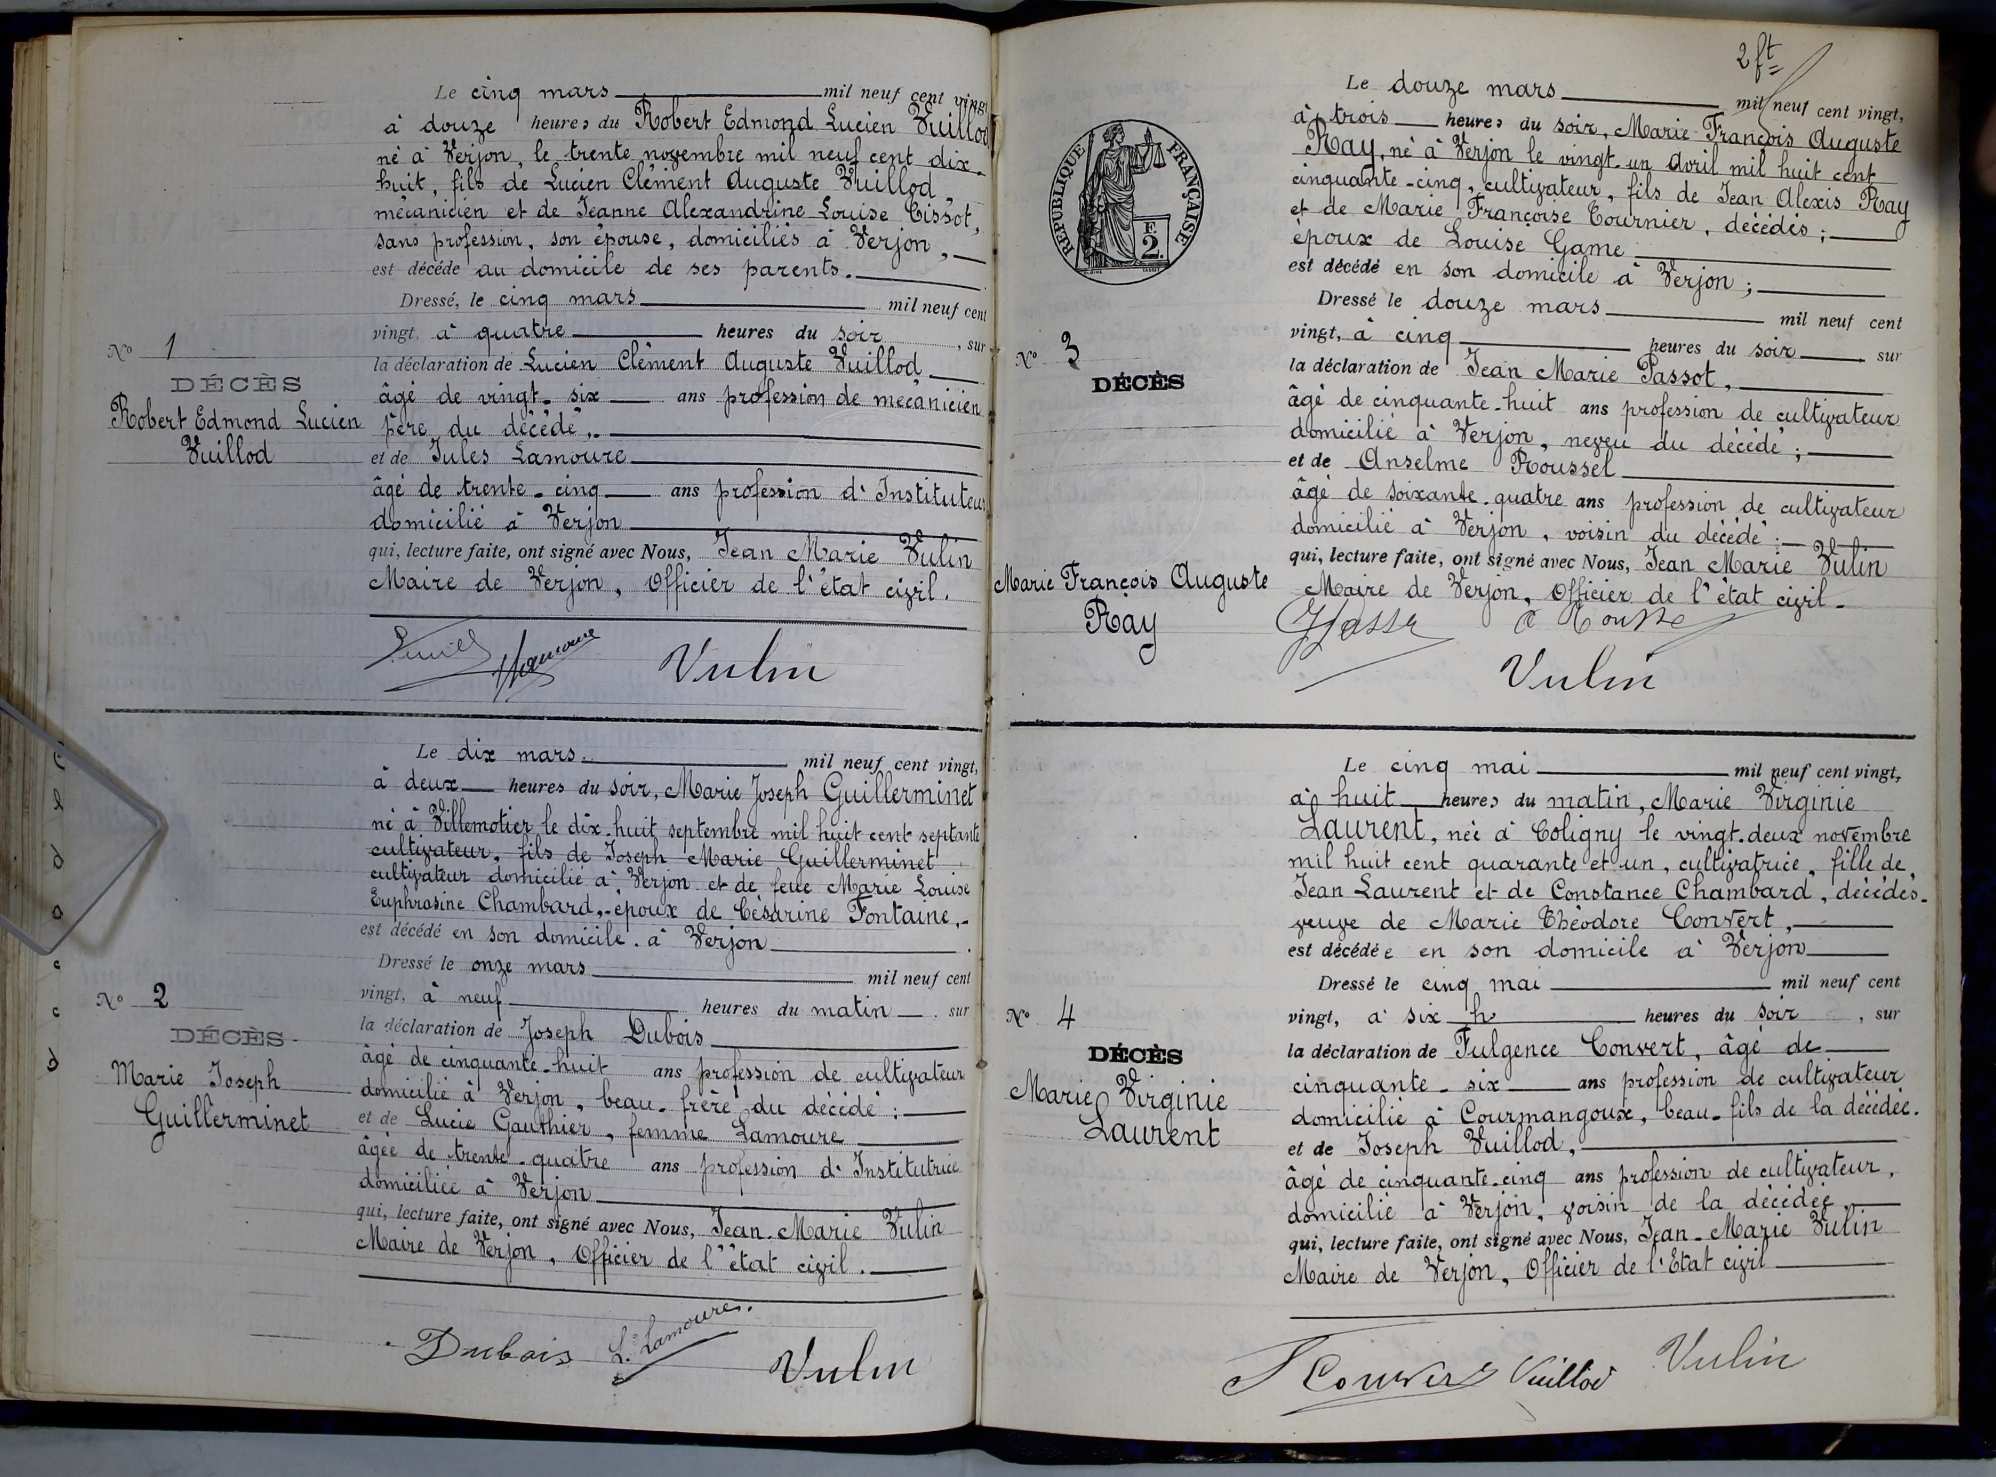 Le cinq mars mil neuf cent vingt
à douze heures du Robert Edmond Lucien Vuillod
né à Verjon, le trente novembre mil neuf cent dix-
huit, fils de Lucien Clément Auguste Vuillod
mécanicien et de Jeanne Alexandrine Louise Cissot,
sans profession, son épouse, domiciliés à Verjon,
est décédé au domicile de ses parents.
Dressé, le cinq mars mil neuf cent
vingt, à quatre heures du soir, sur
la déclaration de Lucien Clément Auguste Vuillod
âgé de vingt-six ans profession de mécanicien
père du décédé,
et de Jules Lamoure
âgé de trente-cinq ans profession d'Instituteur
domicilié à Verjon
qui, lecture faite, ont signé avec Nous, Jean Marie Vulin
Maire de Verjon, Officier de l'état civil.
N° 1
DÉCÈS
Robert Edmond Lucien
Vuillod
Lamoure Vulin
Le dix mars mil neuf cent vingt,
à deux heures du soir, Marie Joseph Guillerminet
né à Villemotier le dix-huit septembre mil huit cent septante
cultivateur, fils de Joseph Marie Guillerminet
cultivateur domicilié à Verjon et de feue Marie Louise
Euphrosine Chambard, époux de Césarine Fontaine,
est décédé en son domicile à Verjon
Dressé le onze mars mil neuf cent
vingt, à neuf heures du matin, sur
la déclaration de Joseph Dubois
âgé de cinquante-huit ans profession de cultivateur
domicilié à Verjon, beau-frère du décédé;
et de Lucie Gauthier, femme Lamoure
âgée de trente-quatre ans profession d'Institutrice
domiciliée à Verjon
qui, lecture faite, ont signé avec Nous, Jean-Marie Vulin
Maire de Verjon, Officier de l'état civil.
N° 2
DÉCÈS
Marie Joseph
Guillerminet
Dubois L. Lamoure Vulin
2 ft
RÉPUBLIQUE FRANÇAISE
F.
2.
Le douze mars mil neuf cent vingt,
à trois heures du soir, Marie François Auguste
Ray, né à Verjon le vingt-un avril mil huit cent
cinquante-cinq, cultivateur, fils de Jean Alexis Ray
et de Marie Françoise Tournier, décédés;
époux de Louise Game
est décédé en son domicile à Verjon;
Dressé le douze mars mil neuf cent
vingt, à cinq heures du soir sur
la déclaration de Jean Marie Passot,
âgé de cinquante-huit ans profession de cultivateur
domicilié à Verjon, neveu du décédé;
et de Anselme Roussel
âgé de soixante-quatre ans profession de cultivateur
domicilié à Verjon, voisin du décédé;
qui, lecture faite, ont signé avec Nous, Jean Marie Vulin
Maire de Verjon, Officier de l'état civil.
N° 3
DÉCÈS
Marie François Auguste
Ray
Vulin
Le cinq mai mil neuf cent vingt,
à huit heures du matin, Marie Virginie
Laurent, née à Coligny le vingt-deux novembre
mil huit cent quarante et un, cultivatrice, fille de
Jean Laurent et de Constance Chambard, décédés.
veuve de Marie Théodore Convert,
est décédée en son domicile à Verjon
Dressé le cinq mai mil neuf cent
vingt, à six h. heures du soir, sur
la déclaration de Fulgence Convert, âgé de
cinquante-six ans profession de cultivateur
domicilié à Courmangoux, beau-fils de la décédée.
et de Joseph Vuillod,
âgé de cinquante-cinq ans profession de cultivateur,
domicilié à Verjon, voisin de la décédée,
qui, lecture faite, ont signé avec Nous, Jean-Marie Vulin
Maire de Verjon, Officier de l'Etat civil
N° 4
DÉCÈS
Marie Virginie
Laurent
Vuillod Vulin